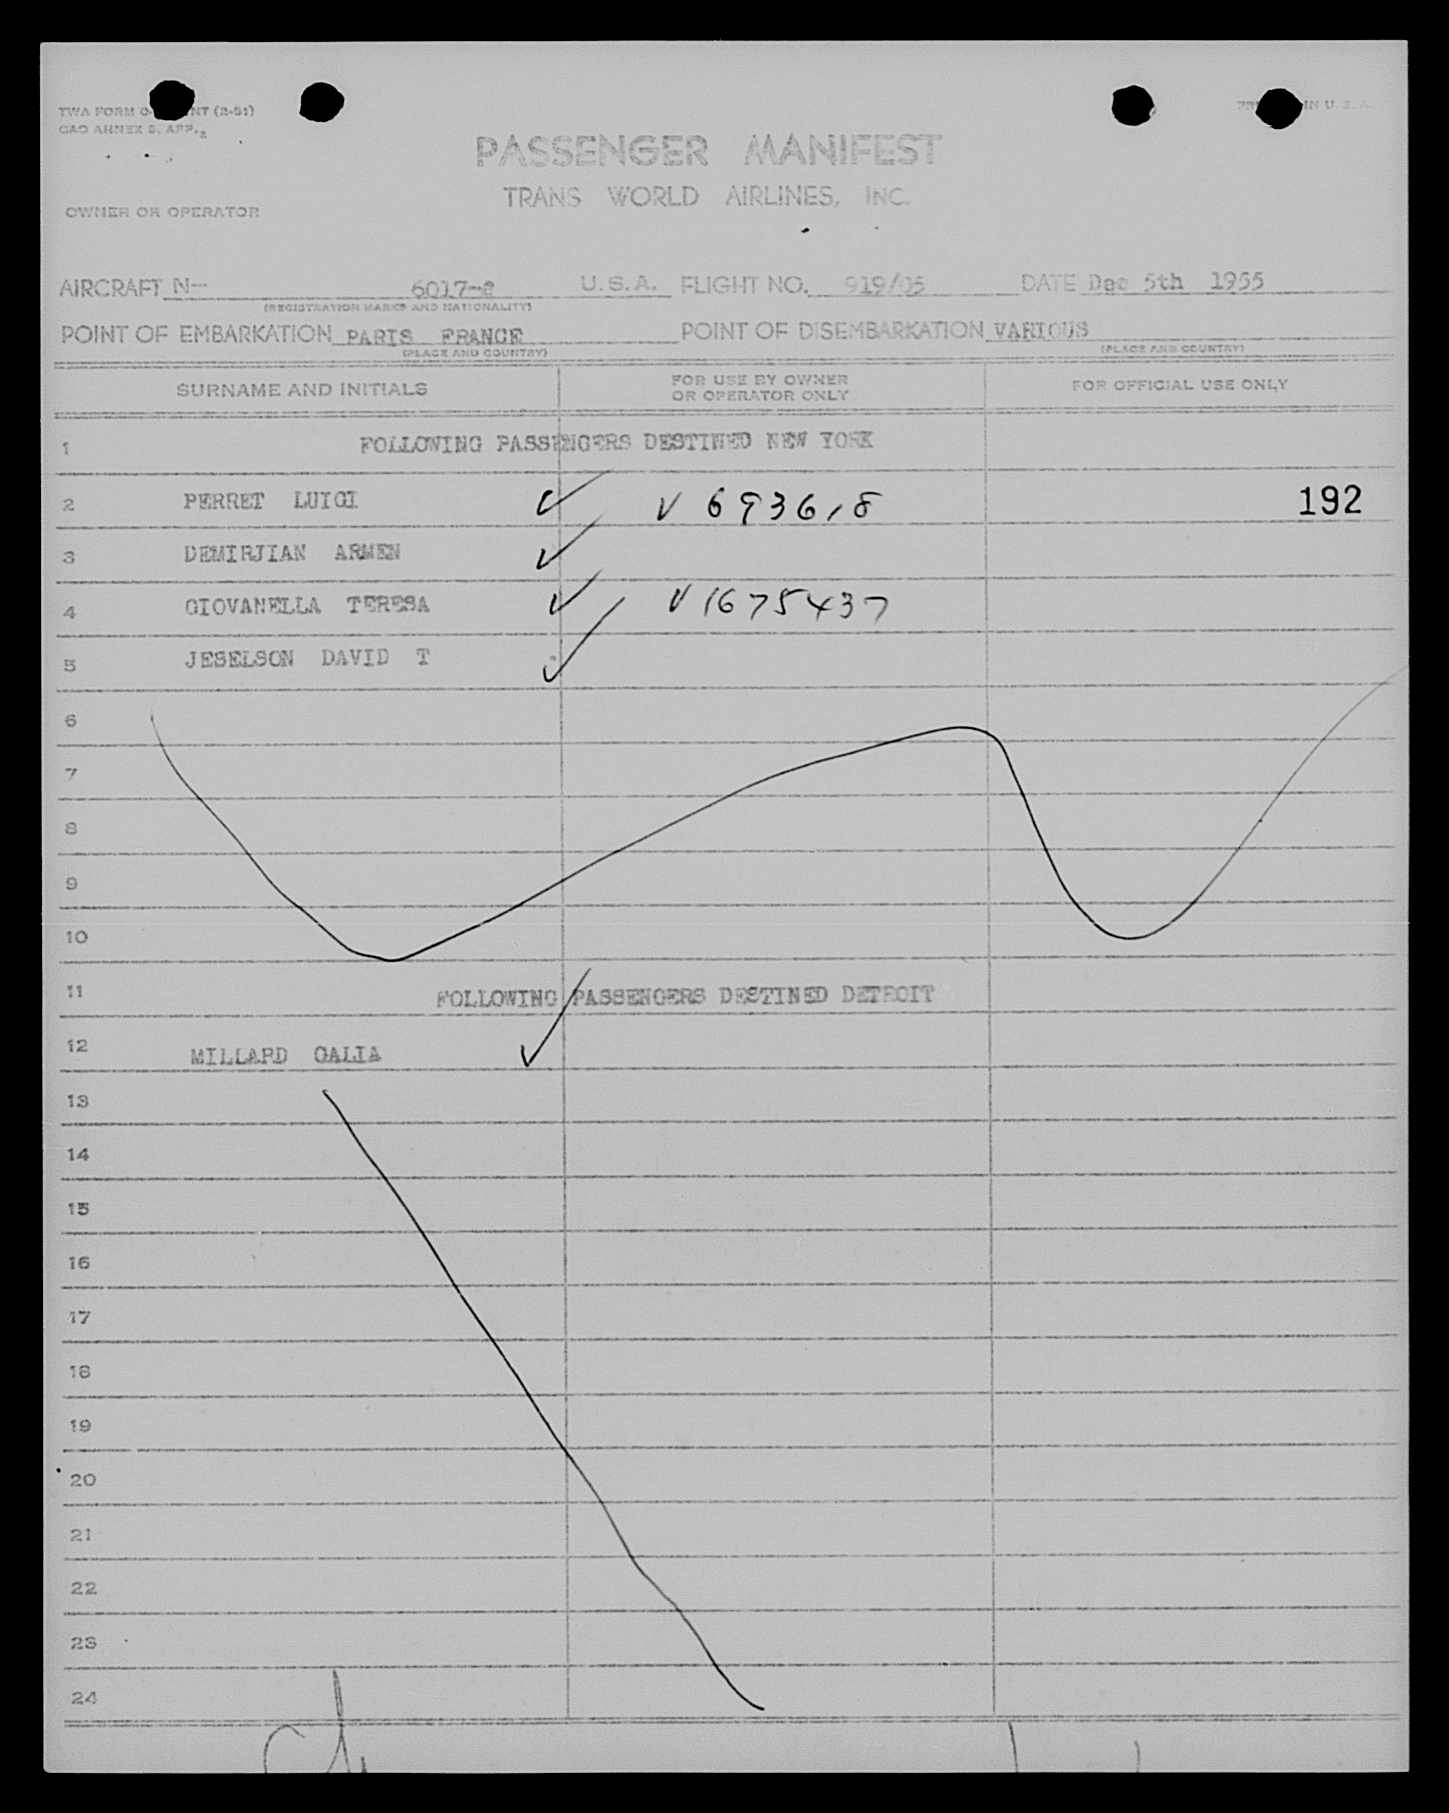 TWA FORM
CAO ANNEX 9. APP. 2
IN U. S. A.
PASSENGER MANIFEST
TRANS WORLD AIRLINES, INC.
OWNER OR OPERATOR
AIRCRAFT N-- 6017-C U.S.A. FLIGHT NO. 919/05 DATE Dec 5th 1955
(REGISTRATION MARKS AND NATIONALITY)
POINT OF EMBARKATION PARIS FRANCE POINT OF DISEMBARKATION VARIOUS
(PLACE AND COUNTRY) (PLACE AND COUNTRY)
SURNAME AND INITIALS FOR USE BY OWNER OR OPERATOR ONLY FOR OFFICIAL USE ONLY
1 FOLLOWING PASSENGERS DESTINED NEW YORK
2 PERRET LUIGI ✓ V 693618 192
3 DEMIRJIAN ARMEN ✓
4 GIOVANELLA TERESA ✓ V1675437
5 JESELSON DAVID T ✓
6
7
8
9
10
11 FOLLOWING PASSENGERS DESTINED DETROIT
12 MILLARD GALIA ✓
13
14
15
16
17
18
19
20
21
22
23
24